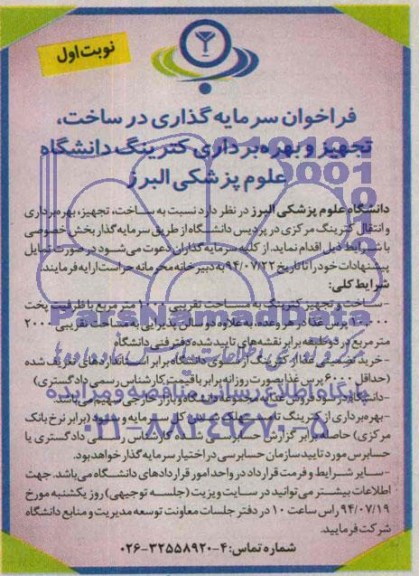 نوبت اول
فراخوان سرمایه گذاری در ساخت،
تجهیز و بهره برداری کترینگ دانشگاه
علوم پزشکی البرز
دانشگاه علوم پزشکی البرز در نظر دارد نسبت به ساخت، تجهیز، بهره برداری
و انتقال کترینگ مرکزی در پردیس دانشگاه از طریق سرمایه گذار بخش خصوصی
با شرایط ذیل اقدام نماید. از کلیه سرمایه گذاران دعوت می شود در صورت تمایل
پیشنهادات خود را تا تاریخ ۹۴/۰۷/۲۲ به دبیرخانه محرمانه حراست ارایه فرمایند.
شرایط کلی:
-ساخت و تجهیز کترینگ به مساحت تقریبی متر مربع با ظرفیت پخت
پرس غذا در هر وعده به علاوه دو سالن پذیرایی به مساحت تقریبی ۲۰۰۰
متر مربع در دو طبقه برابر نقشه های تایید شده دفتر فنی دانشگاه
-خرید غذا از کترینگ از سوی دانشگاه برابر استانداردهای تعریف شده
(حداقل ۶۰۰۰ پرس غذا بصورت روزانه برابر با قیمت کارشناس رسمی دادگستری)
-دانشگاه در سود فروش غذا به مجموعه دانشگاه و برابر می باشد.
-بهره برداری از کترینگ تا کل سرمایه و سود (برابر نرخ بانک
مرکزی) حاصله برابر گزارش کارشناس رسمی دادگستری یا
حسابرس مورد تایید سازمان حسابرسی در اختیار سرمایه گذار خواهد بود.
-سایر شرایط و فرمت قرارداد در واحد امور قراردادهای دانشگاه می باشد. جهت
اطلاعات بیشتر می توانید در سایت ویزیت (جلسه توجیهی) روز یکشنبه مورخ
۹۴/۰۷/۱۹ راس ساعت ۱۰ در دفتر جلسات معاونت توسعه مدیریت و منابع دانشگاه
شرکت فرمایید.
شماره تماس: ۴-۳۲۵۵۸۹۲۰-۰۲۶
ParsNamadData
پایگاه اطلاع رسانی مناقصه و مزایده
۰۲۱-۸۸۳۴۹۶۷۰-۵